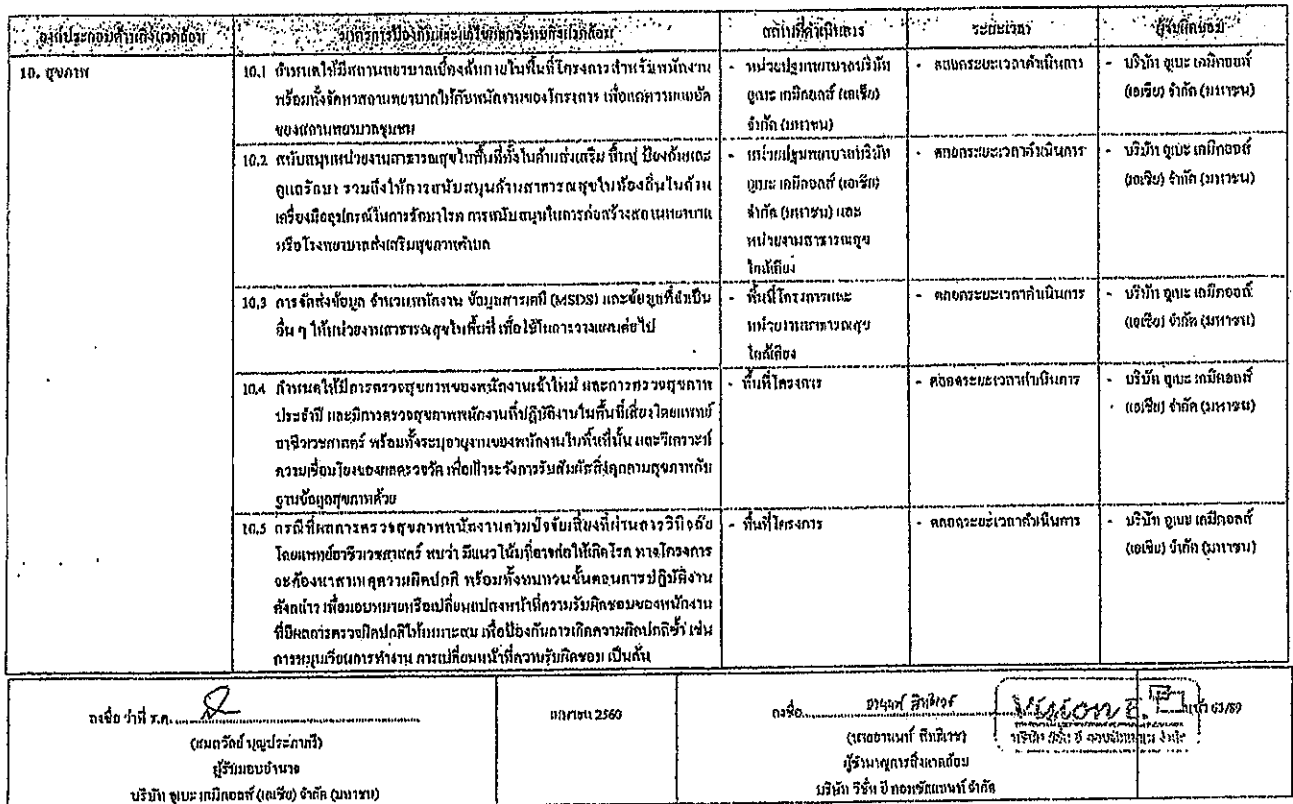 องค์ประกอบด้านสิ่งแวดล้อม
มาตรการป้องกันและแก้ไขผลกระทบสิ่งแวดล้อม
สถานที่ดำเนินการ
ระยะเวลา
ผู้รับผิดชอบ
10. สุขภาพ
10.1 กำหนดให้มีสถานพยาบาลเบื้องต้นภายในพื้นที่โครงการสำหรับพนักงาน
พร้อมทั้งจัดหาสถานพยาบาลให้กับพนักงานของโครงการ เพื่อลดความแออัด
ของสถานพยาบาลชุมชน
- หน่วยปฐมพยาบาลบริษัท
อูเบะ เคมิคอลส์ (เอเชีย)
จำกัด (มหาชน)
- ตลอดระยะเวลาดำเนินการ
- บริษัท อูเบะ เคมิคอลส์
(เอเชีย) จำกัด (มหาชน)
10.2 สนับสนุนหน่วยงานสาธารณสุขในพื้นที่ทั้งในด้านส่งเสริม ฟื้นฟู ป้องกันและ
ดูแลรักษา รวมถึงให้การสนับสนุนด้านสาธารณสุขในท้องถิ่นในด้าน
เครื่องมืออุปกรณ์ในการรักษาโรค การสนับสนุนในการก่อสร้างสถานพยาบาล
หรือโรงพยาบาลส่งเสริมสุขภาพตำบล
- หน่วยปฐมพยาบาลบริษัท
อูเบะ เคมิคอลส์ (เอเชีย)
จำกัด (มหาชน) และ
หน่วยงานสาธารณสุข
ใกล้เคียง
- ตลอดระยะเวลาดำเนินการ
- บริษัท อูเบะ เคมิคอลส์
(เอเชีย) จำกัด (มหาชน)
10.3 การจัดส่งข้อมูล จำนวนพนักงาน ข้อมูลสารเคมี (MSDS) และข้อมูลที่จำเป็น
อื่น ๆ ให้หน่วยงานสาธารณสุขในพื้นที่ เพื่อใช้ในการวางแผนต่อไป
- พื้นที่โครงการและ
หน่วยงานสาธารณสุข
ใกล้เคียง
- ตลอดระยะเวลาดำเนินการ
- บริษัท อูเบะ เคมิคอลส์
(เอเชีย) จำกัด (มหาชน)
10.4 กำหนดให้มีการตรวจสุขภาพของพนักงานเข้าใหม่ และการตรวจสุขภาพ
ประจำปี และมีการตรวจสุขภาพพนักงานที่ปฏิบัติงานในพื้นที่เสี่ยงโดยแพทย์
อาชีวเวชศาสตร์ พร้อมทั้งระบุอายุงานของพนักงานในพื้นที่นั้น และวิเคราะห์
ความเชื่อมโยงของผลตรวจวัด เพื่อเฝ้าระวังการรับสัมผัสสิ่งคุกคามสุขภาพกับ
ฐานข้อมูลสุขภาพด้วย
- พื้นที่โครงการ
- ตลอดระยะเวลาดำเนินการ
- บริษัท อูเบะ เคมิคอลส์
(เอเชีย) จำกัด (มหาชน)
10.5 กรณีที่ผลการตรวจสุขภาพพนักงานตามปัจจัยเสี่ยงที่ผ่านการวินิจฉัย
โดยแพทย์อาชีวเวชศาสตร์ พบว่า มีแนวโน้มที่อาจก่อให้เกิดโรค ทางโครงการ
จะต้องหาสาเหตุความผิดปกติ พร้อมทั้งทบทวนขั้นตอนการปฏิบัติงาน
ดังกล่าว เพื่อมอบหมายหรือเปลี่ยนแปลงหน้าที่ความรับผิดชอบของพนักงาน
ที่มีผลการตรวจผิดปกติให้เหมาะสม เพื่อป้องกันการเกิดความผิดปกติซ้ำ เช่น
การหมุนเวียนการทำงาน การเปลี่ยนหน้าที่ความรับผิดชอบ เป็นต้น
- พื้นที่โครงการ
- ตลอดระยะเวลาดำเนินการ
- บริษัท อูเบะ เคมิคอลส์
(เอเชีย) จำกัด (มหาชน)
ลงชื่อ ว่าที่ ร.ต.
(สมดวัลย์ บุญประภาศรี)
ผู้รับมอบอำนาจ
บริษัท อูเบะ เคมิคอลส์ (เอเชีย) จำกัด (มหาชน)
เมษายน 2560
ลงชื่อ
ผู้ชำนาญการสิ่งแวดล้อม
บริษัท วิชั่น อี คอนซัลแทนท์ จำกัด
Vision E.
บริษัท วิชั่น อี คอนซัลแทนท์ จำกัด
หน้า 63/89